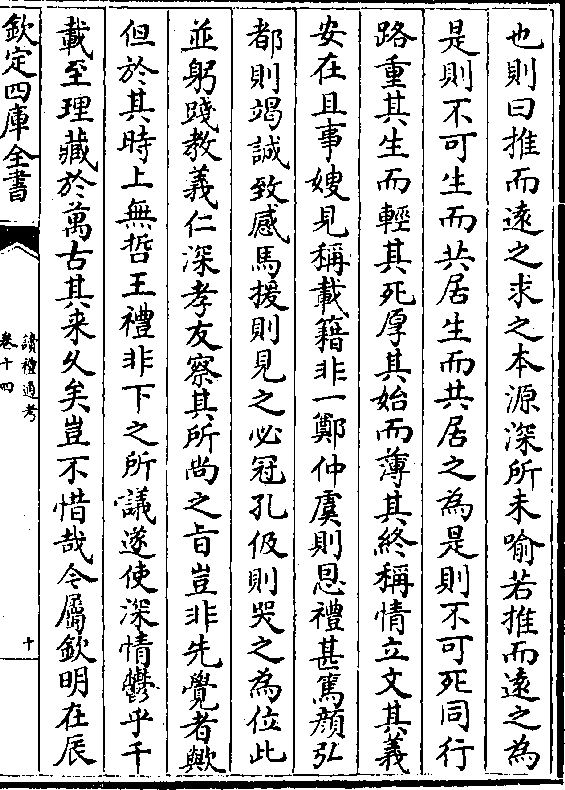 也則曰推而遠之求之本源深所未喻若推而遠之為
是則不可生而共居生而共居之為是則不可死同行
路重其生而輕其死厚其始而薄其終稱情立文其義
安在且事嫂見稱載籍非一鄭仲虞則恩禮甚篤顔弘
都則竭誠致感馬援則見之必冠孔伋則哭之為位此
並躬踐教義仁深孝友察其所尚之旨豈非先覺者歟
但於其時上無哲王禮非下之所議遂使深情鬱乎千
載至理藏於萬古其来久矣豈不惜哉今屬欽明在辰
欽定四庫全書
讀禮通考
卷十四
十